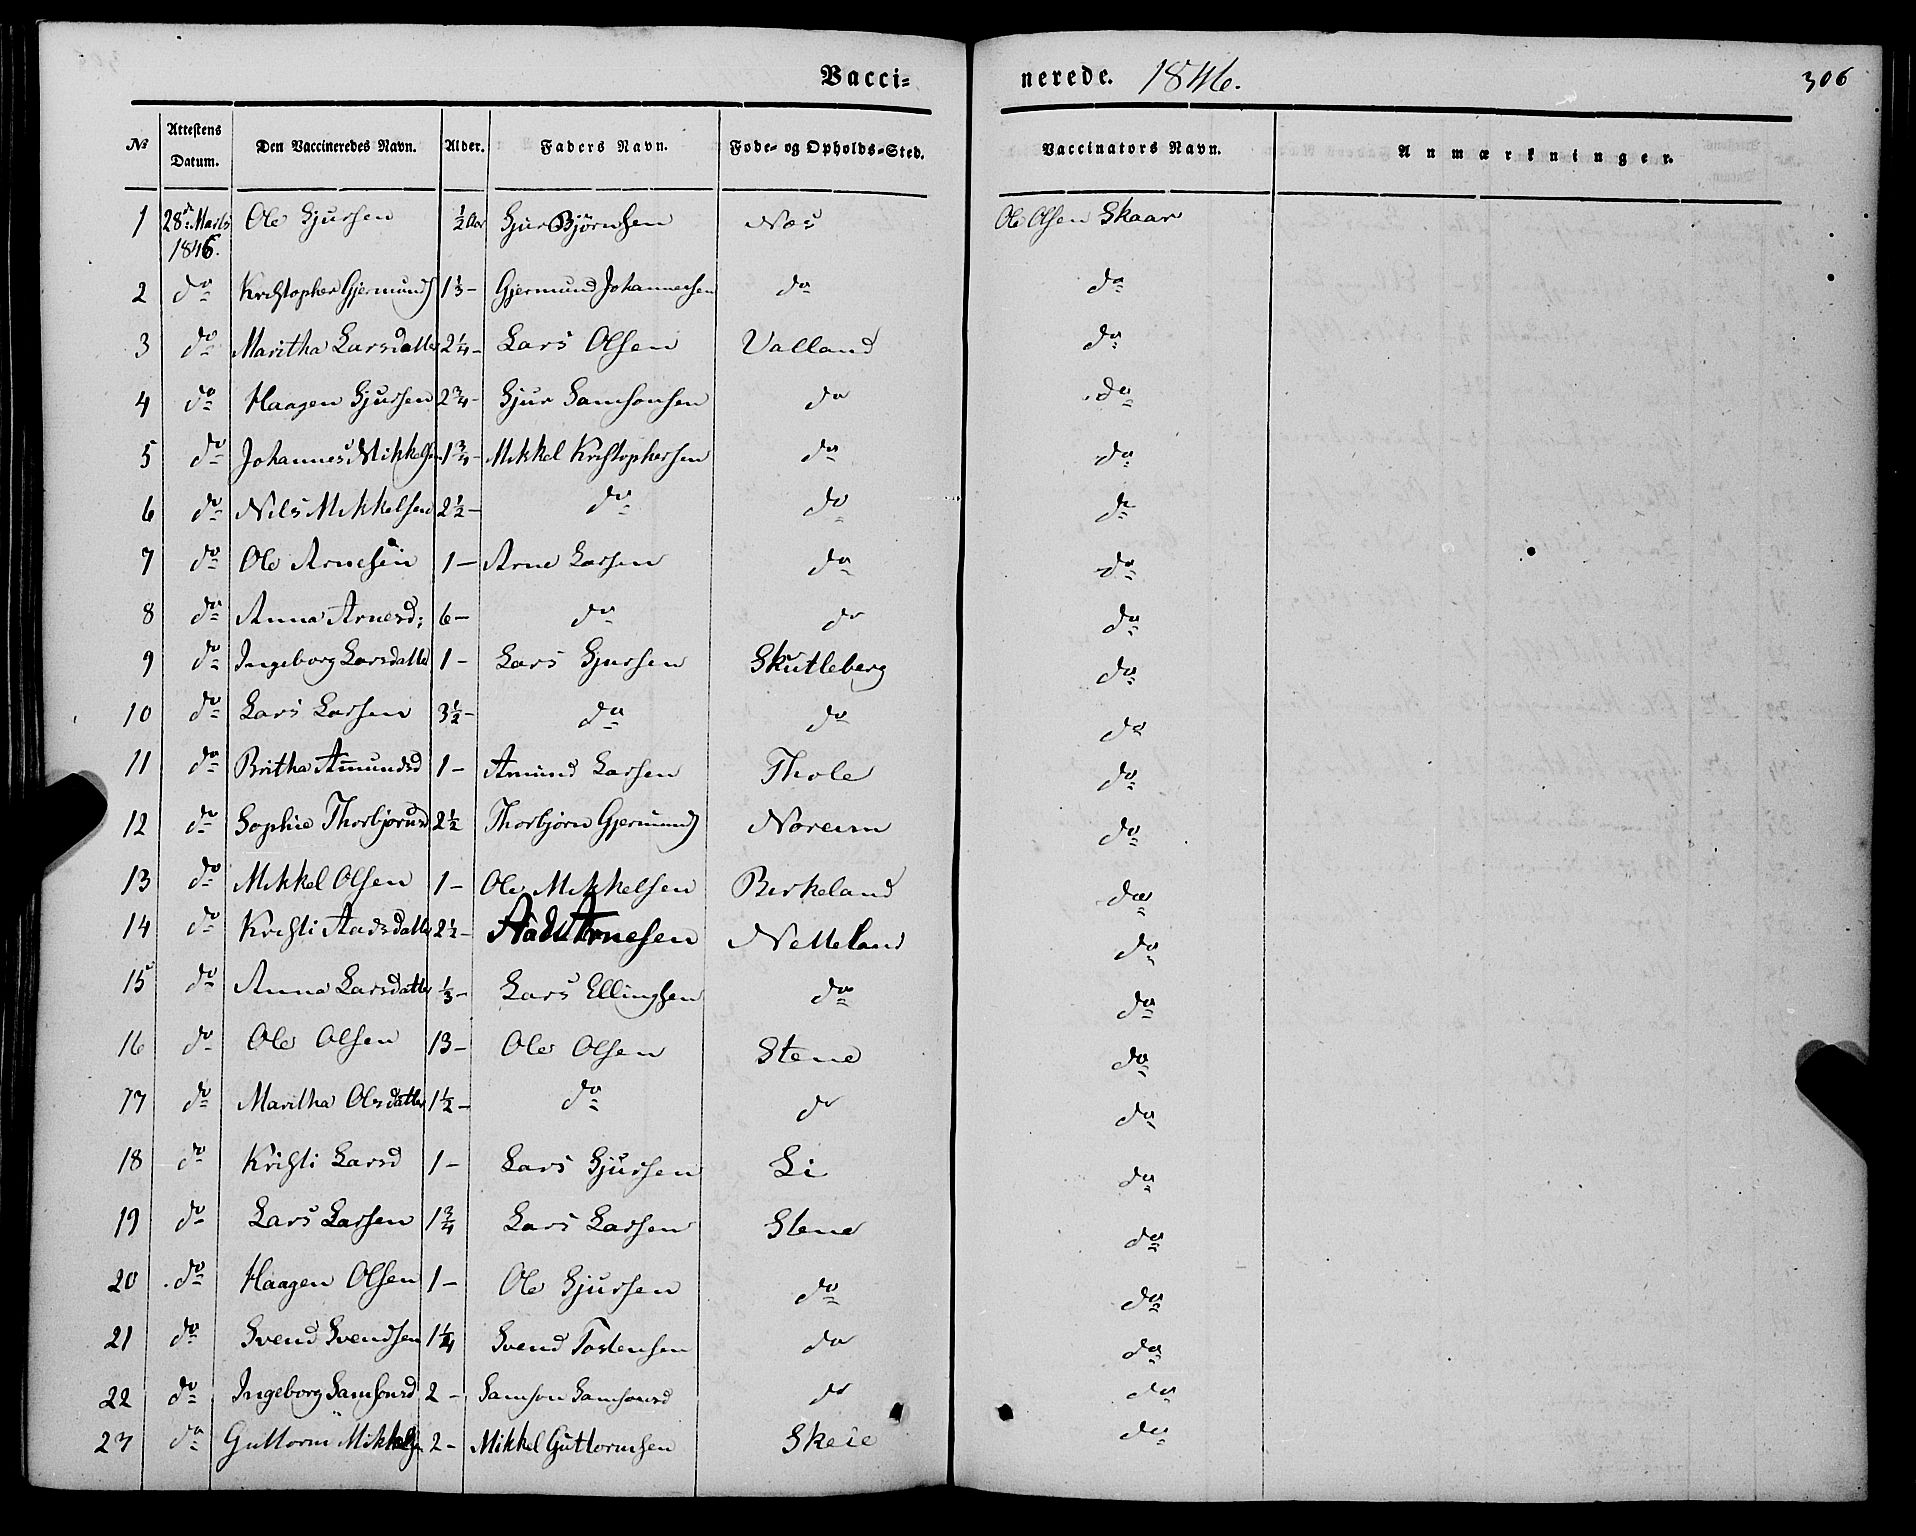 Vacci= nerede. 1846. 306
No Attestens Datum. Den Vaccineredes Navn. Alder. Faders Navn. Føde- og Opholds-Sted. Vaccinators Navn. Anmærkninger.
1 28de Marts 1846. Ole Sjursen ½ Aar Sjur Björnsen Næs Ole Olsen Skaar
2 do Kristopher Gjermunds 1⅓- Gjermund Johannessen do do
3 do Maritha Larsdatter 2¼- Lars Olsen Valland do
4 do Haagen Sjursen 2¾- Sjur Samsonsen do do
5 do Johannes Mikkelsen 1¾- Mikkel Kristophersen do do
6 do Nils Mikkelsen 2½- do do do
7 do Ole Arnesen 1- Arne Larsen do do
8 do Anna Arnesd: 6- do do do
9 do Ingeborg Larsdatter 1- Lars Sjursen Skutleberg do
10 do Lars Larsen 3½- do do do
11 do Britha Amundsd 1- Amund Larsen Thole do
12 do Sophie Thorbjørnsd 2½ Thorbjørn Gjermunds Noreim do
13 do Mikkel Olsen 1- Ole Mikkelsen Birkeland do
14 do Kristi Aadsdatter 2½- Aad Arnesen Netteland do
15 do Anna Larsdatter ⅓- Lars Ellingsen do do
16 do Ole Olsen 13- Ole Olsen Stene do
17 do Maritha Olsdatter 1½- do do do
18 do Kristi Larsd 1- Lars Sjursen Li do
19 do Lars Larsen 1¾ Lars Larsen Stene do
20 do Haagen Olsen 1- Ole Sjursen do do
21 do Svend Svendsen 1¼ Svend Tostensen do do
22 do Ingeborg Samsonsd 2- Samson Samsonsd do do
23 do Guttorm Mikkelsen 2- Mikkel Guttormsen Skeie do